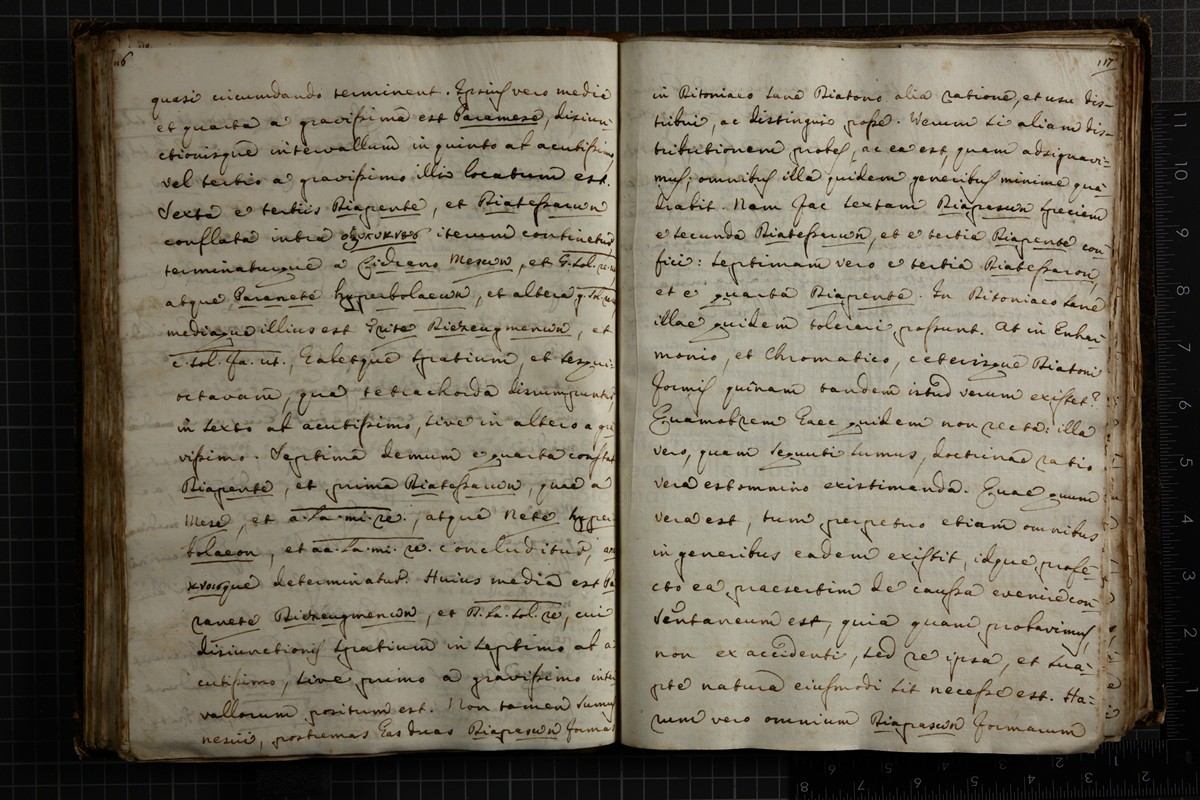 116
quasi circumdando terminent. Ipsius vero media
et quarta a gravissima est Paramese, disiun
ctionisque intervallum in quinto ab acutissimo
vel tertio a gravissimo illis locatum est.
Sexta e tertiis Diapente, et Diatessarωn
conflata intra iterum continetur
terminaturque a Lichano Mesωn, et G. sol. re. ut
atque Paranete hyperbolaeωn, et altera g. sol. re. ut
mediaque illius est Trite Diezeugmenωn, et
c. sol. fa. ut. habetque spatium, et sesqui-
octavam, qua tetrachorda disiunguntur
in sexto ab acutissimo, sive in altero a gra
vissimo. Septima demum e quarta constat
Diapente, et prima Diatessarωn, quae a
Mese, et a. la. mi. re., atque Nete hyper
bolaeon, et aa. la. mi. re. concluditur,
determinatur. Huius media est Pa
ranete Diezeugmenωn, et D. la. sol. re, cui
disiunctionis spatium in septimo ab a
cutissimo, sive primo a gravissimo inter
vallorum positum est. Non tamen sumus
nescii, postremas has duas Diapasωn formas
117
in Ditoniaco sane Diatono alia ratione, et usu dis-
tribui, ac distingui posse. Verum si aliam dis-
tributionem probes, ac ea est, quam adsignavi-
mus; omnibus illa quidem generibus minime qua
drabit. Nam fac sextam Diapasωn speciem
e secunda Diatessarωn, et e tertia Diapente con
fici: septimam vero e tertia Diatessaron,
et e quarta Diapente. In Ditoniaco sane
illae quidem tolerari possunt. At in Enhar-
monio, et Chromatico, ceterisque Diatoni
formis quinam tandem istud verum existet?
Quamobrem haec quidem non recta: illa
vero, quam sequuti sumus, doctrinae ratio
vera est omnino existimanda. Quae quum
vera est, tum perpetuo etiam omnibus
in generibus eadem existit, idque profe-
cto ea praesertim de caussa evenire con-
sentaneum est, quia quam probavimus,
non ex accidenti, sed re ipsa, et sua-
pte natura eiusmodi sit necesse est. Ha-
rum vero omnium Diapasωn formarum